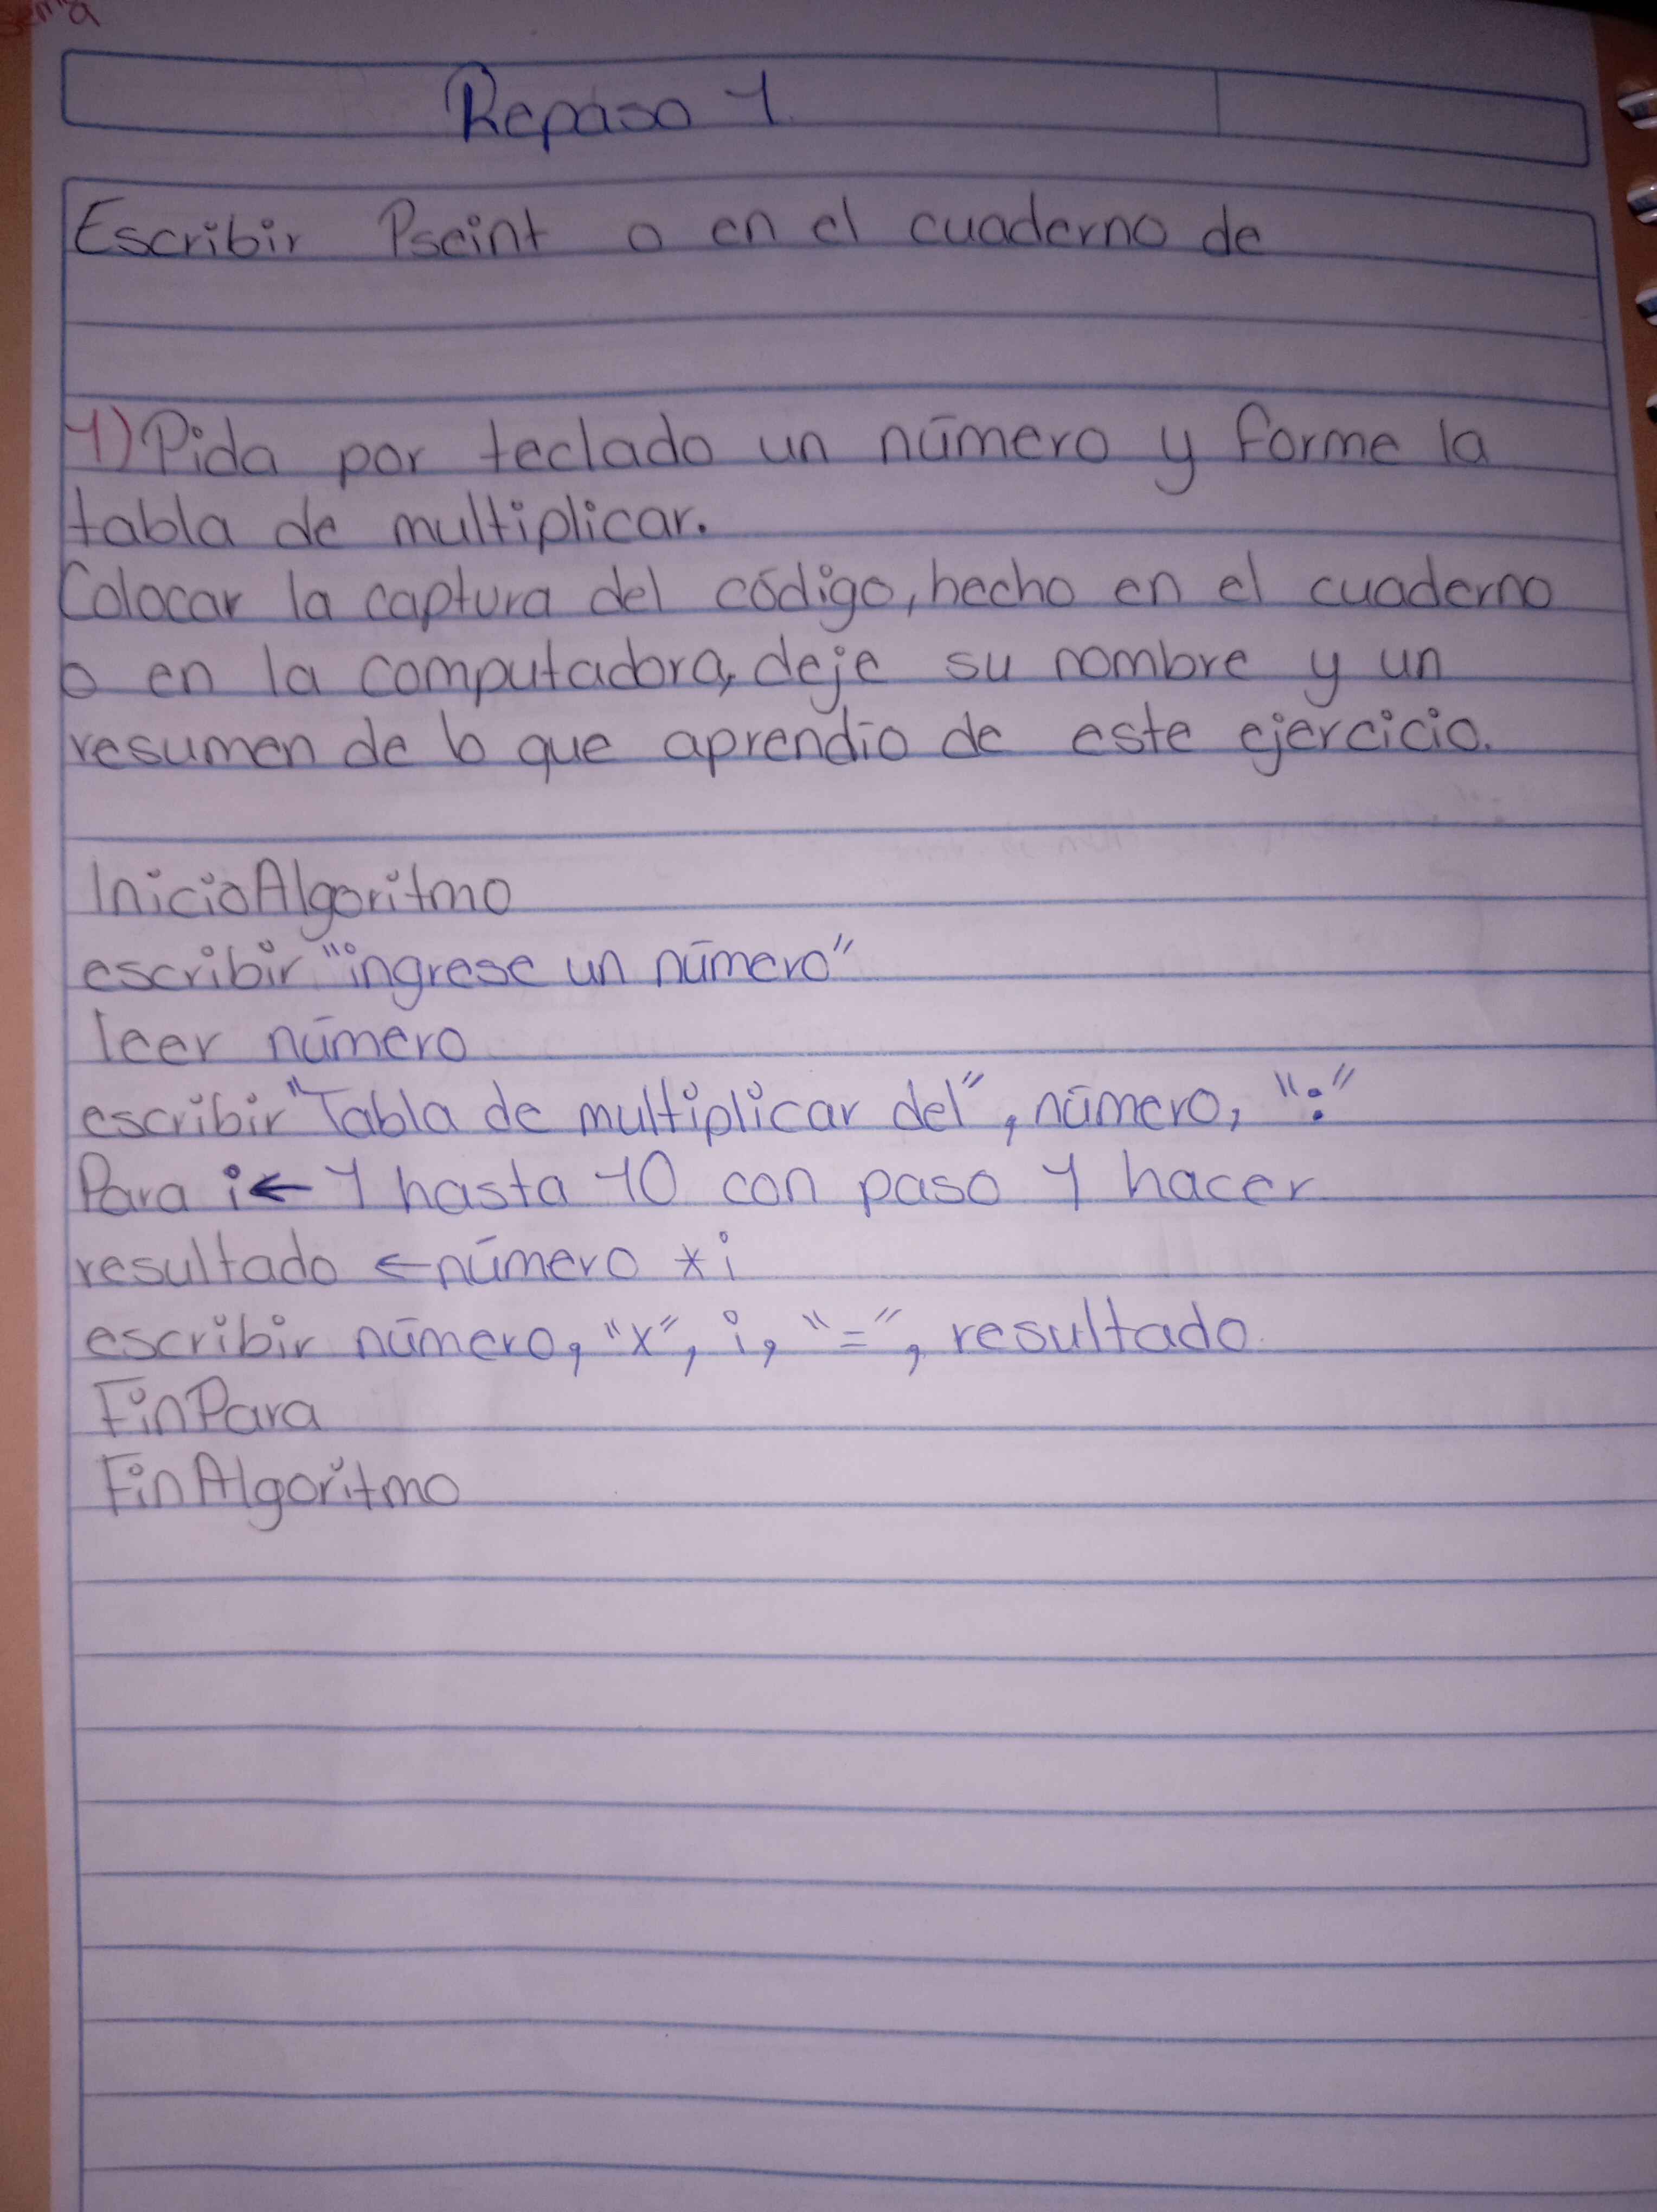 Repaso 1
Escribir Pseint o en el cuaderno de
1) Pida por teclado un número y forme la
tabla de multiplicar.
Colocar la captura del código, hecho en el cuaderno
o en la computadora, deje su nombre y un
resumen de lo que aprendio de este ejercicio.
InicioAlgoritmo
escribir "ingrese un número"
leer número
escribir "Tabla de multiplicar del", número, ":"
Para i ← 1 hasta 10 con paso 1 hacer
resultado ← número * i
escribir número, "x", i, "=", resultado
FinPara
FinAlgoritmo